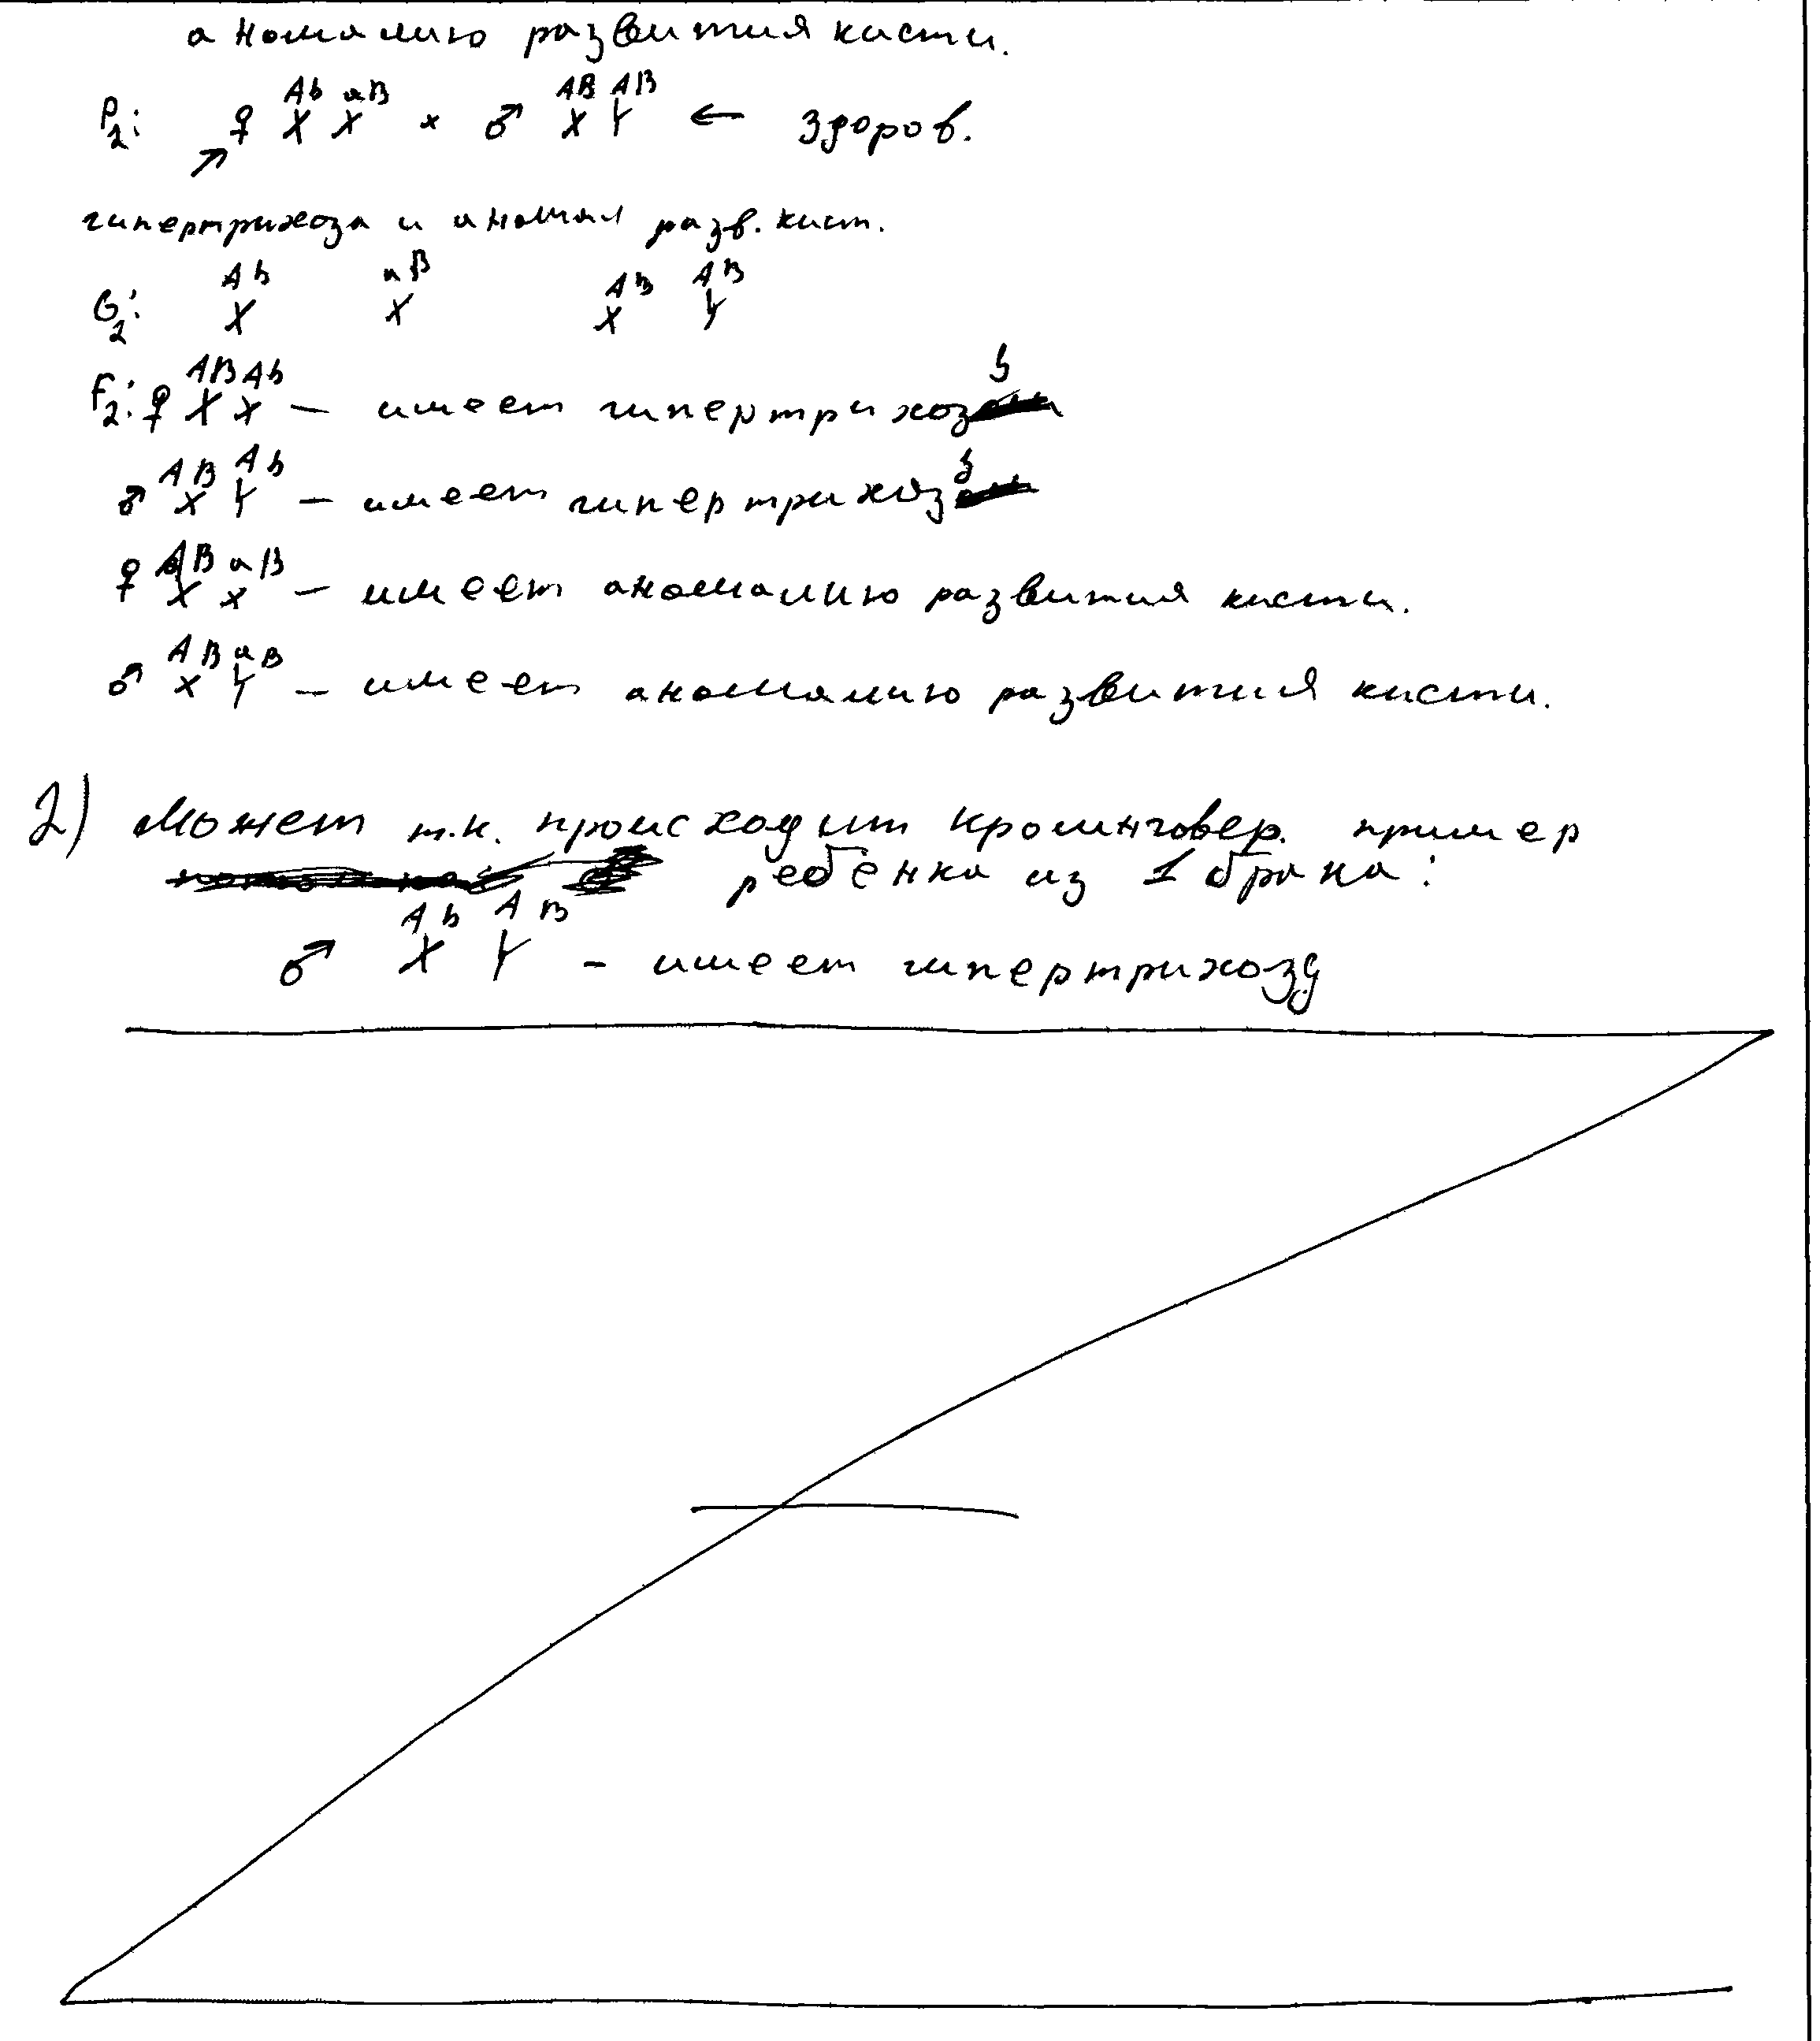 аномалию развития кисти.
P₂: ♀ X^Ab X^aB × ♂ X^AB Y^AB ← здоров.
↗
гипертрихоза и аномал разв. кист.
G₂: X^Ab X^aB X^AB Y^AB
F₂: ♀ X^AB X^Ab – имеет гипертрихоз
♂ X^AB Y^Ab – имеет гипертрихоз
♀ X^AB X^aB – имеет аномалию развития кисти.
♂ X^AB Y^aB – имеет аномалию развития кисти.
2) Может т.к. происходит кроинговер. пример
ребёнка из 1 брака:
♂ X^Ab Y^AB – имеет гипертрихоз